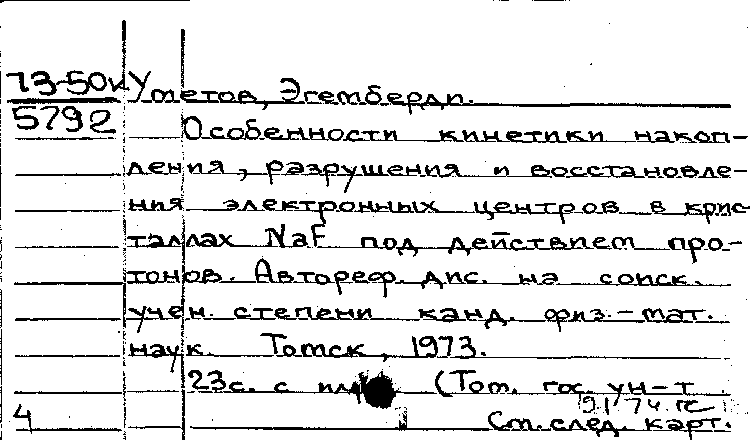 73-50кУ
5792
Уметов, Эгемберди.
Особенности кинетики накоп-
ления, разрушения и восстановле-
ния электронных центров в крис-
таллах NaF под действием про-
тонов. Автореф. дис. на соиск.
учен. степени канд. физ.-мат.
наук. Томск, 1973.
23с. с ил (Том. гос. ун-т
4
См. след. карт.